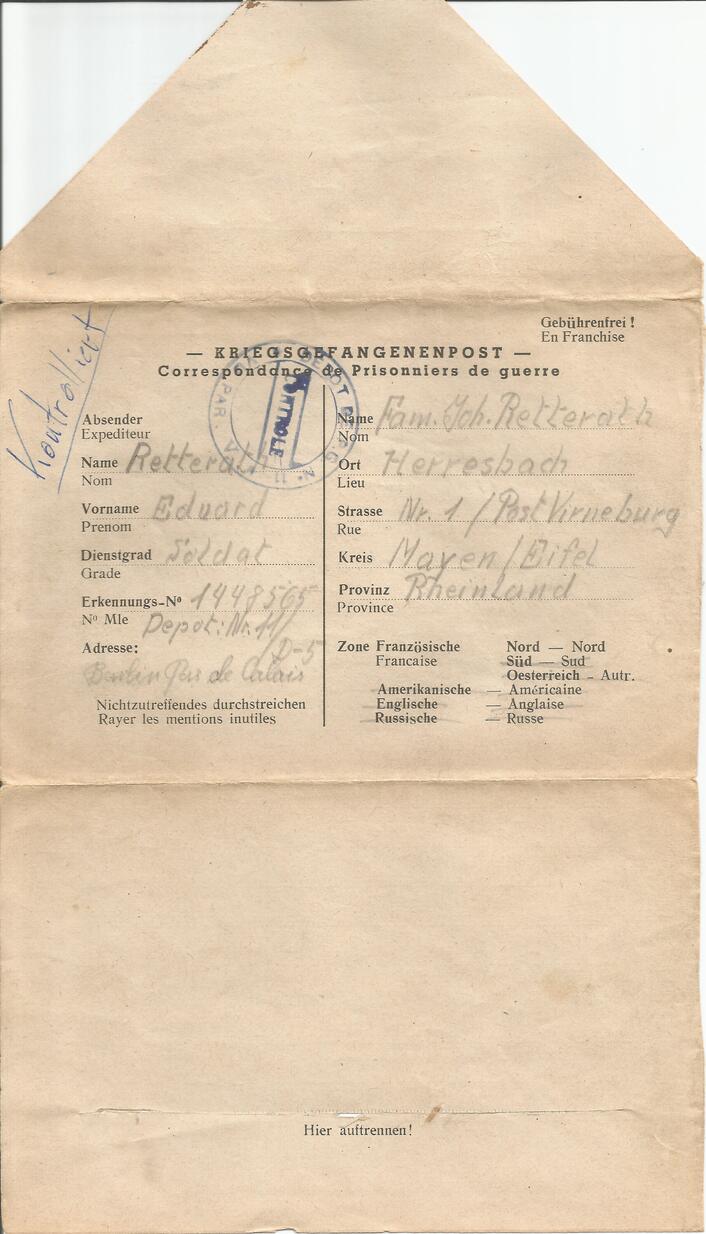 Gebührenfrei !
En Franchise
— KRIEGSGEFANGENENPOST —
Correspondance de Prisonniers de guerre
Kontrolliert
DEPOT DE P.G. N° 11
CONTROLE
Absender
Expediteur
Name Retterath
Nom
Vorname Eduard
Prenom
Dienstgrad Soldat
Grade
Erkennungs-Nº 1448565
Nº Mle Depot: Nr. 11/
Adresse: /D-5
de Calais
Nichtzutreffendes durchstreichen
Rayer les mentions inutiles
Name Fam. Joh. Retterath
Nom
Ort Herresbach
Lieu
Strasse Nr. 1 / Post Virneburg
Rue
Kreis Mayen / Eifel
Provinz Rheinland
Province
Zone Französische Nord — Nord
Francaise Süd — Sud
Oesterreich - Autr.
Amerikanische — Américaine
Englische — Anglaise
Russische — Russe
Hier auftrennen!